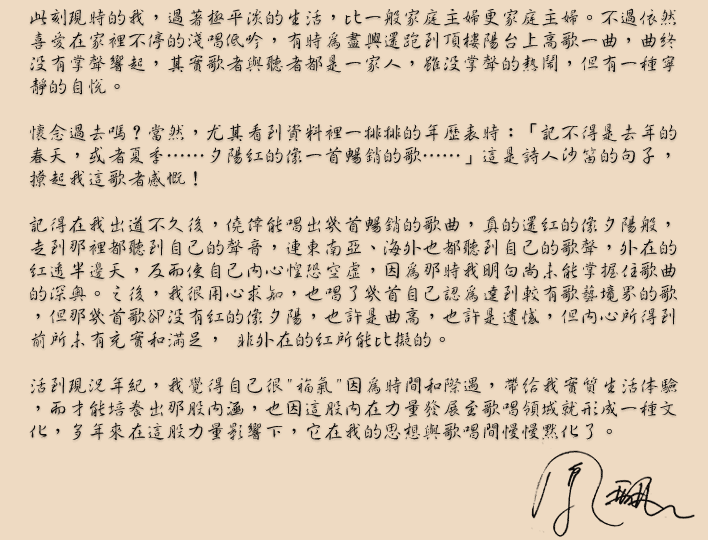 此刻現時的我，過著極平淡的生活，比一般家庭主婦更家庭主婦。不過依然
喜愛在家裡不停的淺唱低吟，有時為盡興還跑到頂樓陽台上高歌一曲，曲終
沒有掌聲響起，其實歌者與聽者都是一家人，雖沒掌聲的熱鬧，但有一種寧
靜的自悅。
懷念過去嗎？當然，尤其看到資料裡一排排的年歷表時：「記不得是去年的
春天，或者夏季……夕陽紅的像一首暢銷的歌……」這是詩人沙笛的句子，
撩起我這歌者感慨！
記得在我出道不久後，僥倖能唱出幾首暢銷的歌曲，真的還紅的像夕陽般，
走到那裡都聽到自己的聲音，連東南亞、海外也都聽到自己的歌聲，外在的
紅透半邊天，反而使自己內心惶恐空虛，因為那時我明白尚未能掌握住歌曲
的深奧。之後，我很用心求知，也唱了幾首自己認為達到較有歌藝境界的歌
，但那幾首歌卻沒有紅的像夕陽，也許是曲高，也許是遺憾，但內心所得到
前所未有充實和滿足， 非外在的紅所能比擬的。
活到現況年紀，我覺得自己很"福氣"因為時間和際遇，帶給我實質生活体驗
，而才能培養出那股內涵，也因這股內在力量發展至歌唱領域就形成一種文
化，多年來在這股力量影響下，它在我的思想與歌唱間慢慢默化了。